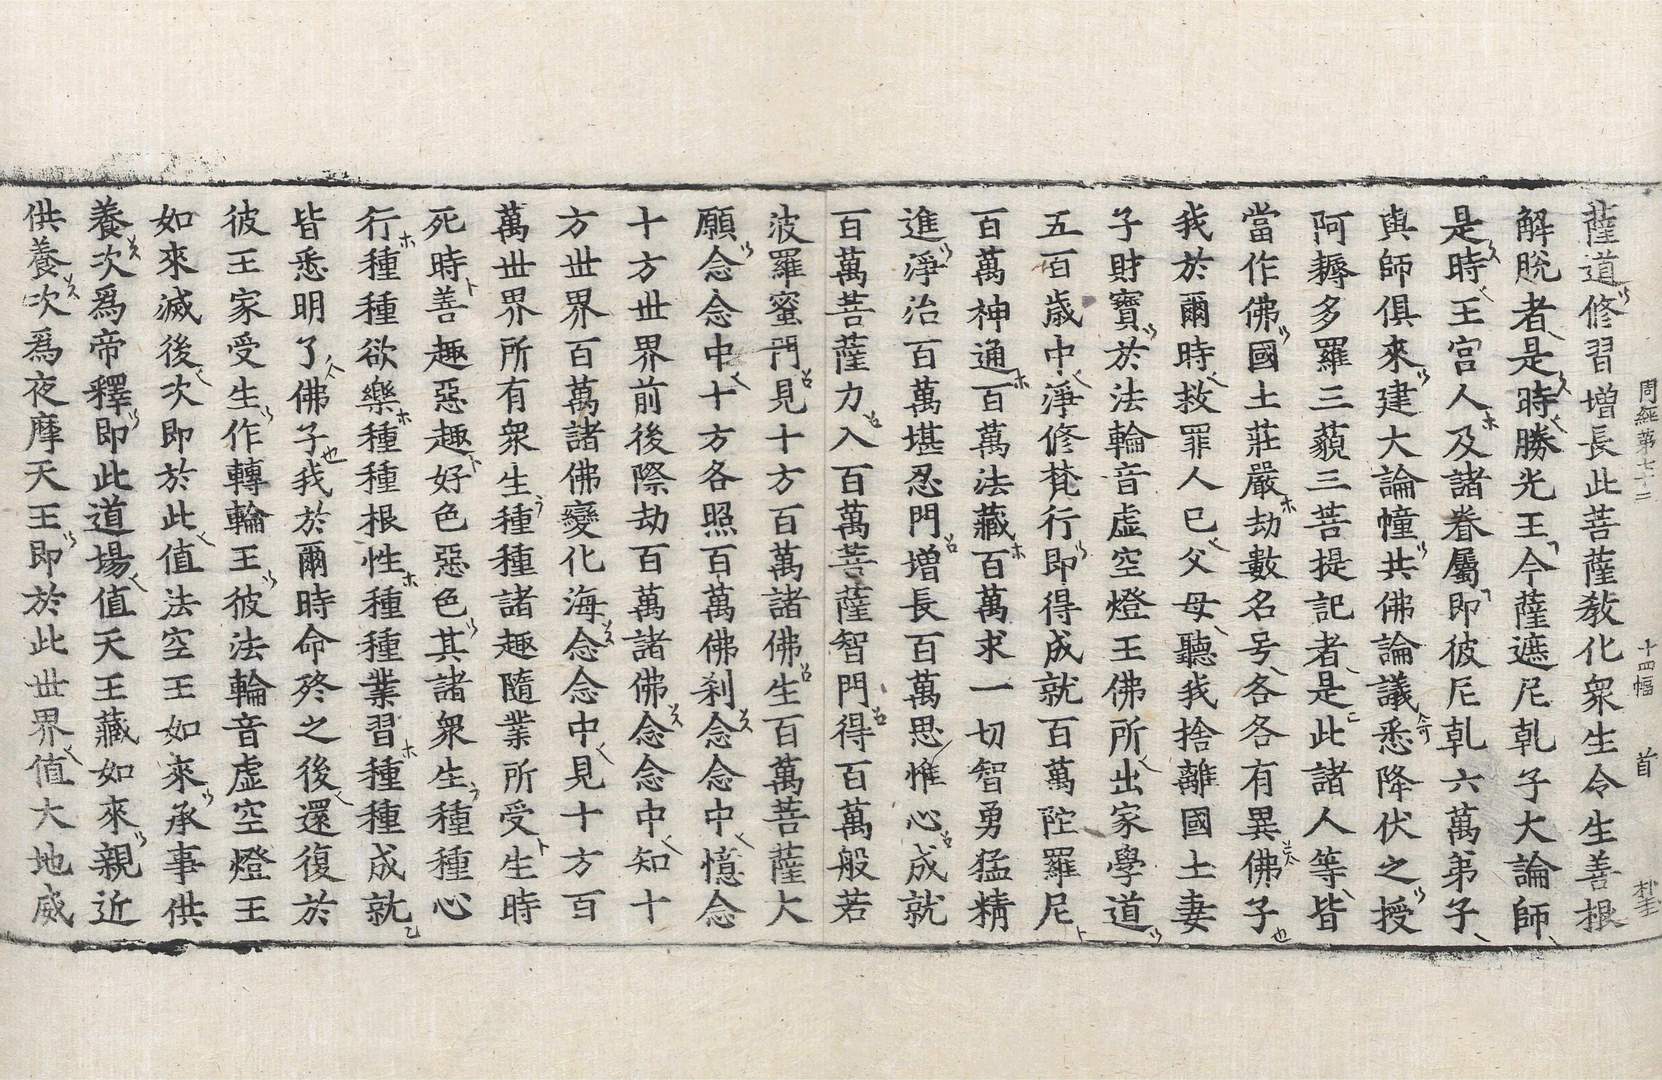 周經第七十三 十四幅 首
薩道修習增長此菩薩教化衆生令生善根
解脫者是時勝光王今薩遮尼乹子大論師
是時王宮人及諸眷屬即彼尼乹六萬弟子
與師俱來建大論幢共佛論議悉降伏之授
阿耨多羅三藐三菩提記者是此諸人等皆
當作佛國土莊嚴劫數名号各各有異佛子
我於爾時救罪人已父母聽我捨離國土妻
子財寶於法輪音虛空燈王佛所出家學道
五百歲中淨修梵行即得成就百萬陁羅尼
百萬神通百萬法藏百萬求一切智勇猛精
進淨治百萬堪忍門增長百萬思惟心成就
百萬菩薩力入百萬菩薩智門得百萬般若
波羅蜜門見十方百萬諸佛生百萬菩薩大
願念念中十方各照百萬佛刹念念中憶念
十方世界前後際劫百萬諸佛念念中知十
方世界百萬諸佛變化海念念中見十方百
萬世界所有衆生種種諸趣隨業所受生時
死時善趣惡趣好色惡色其諸衆生種種心
行種種欲樂種種根性種種業習種種成就
皆悉明了佛子我於爾時命終之後還復於
彼王家受生作轉輪王彼法輪音虛空燈王
如來滅後次即於此值法空王如來承事供
養次爲帝釋即此道場值天王藏如來親近
供養次爲夜摩天王即於此世界值大地威